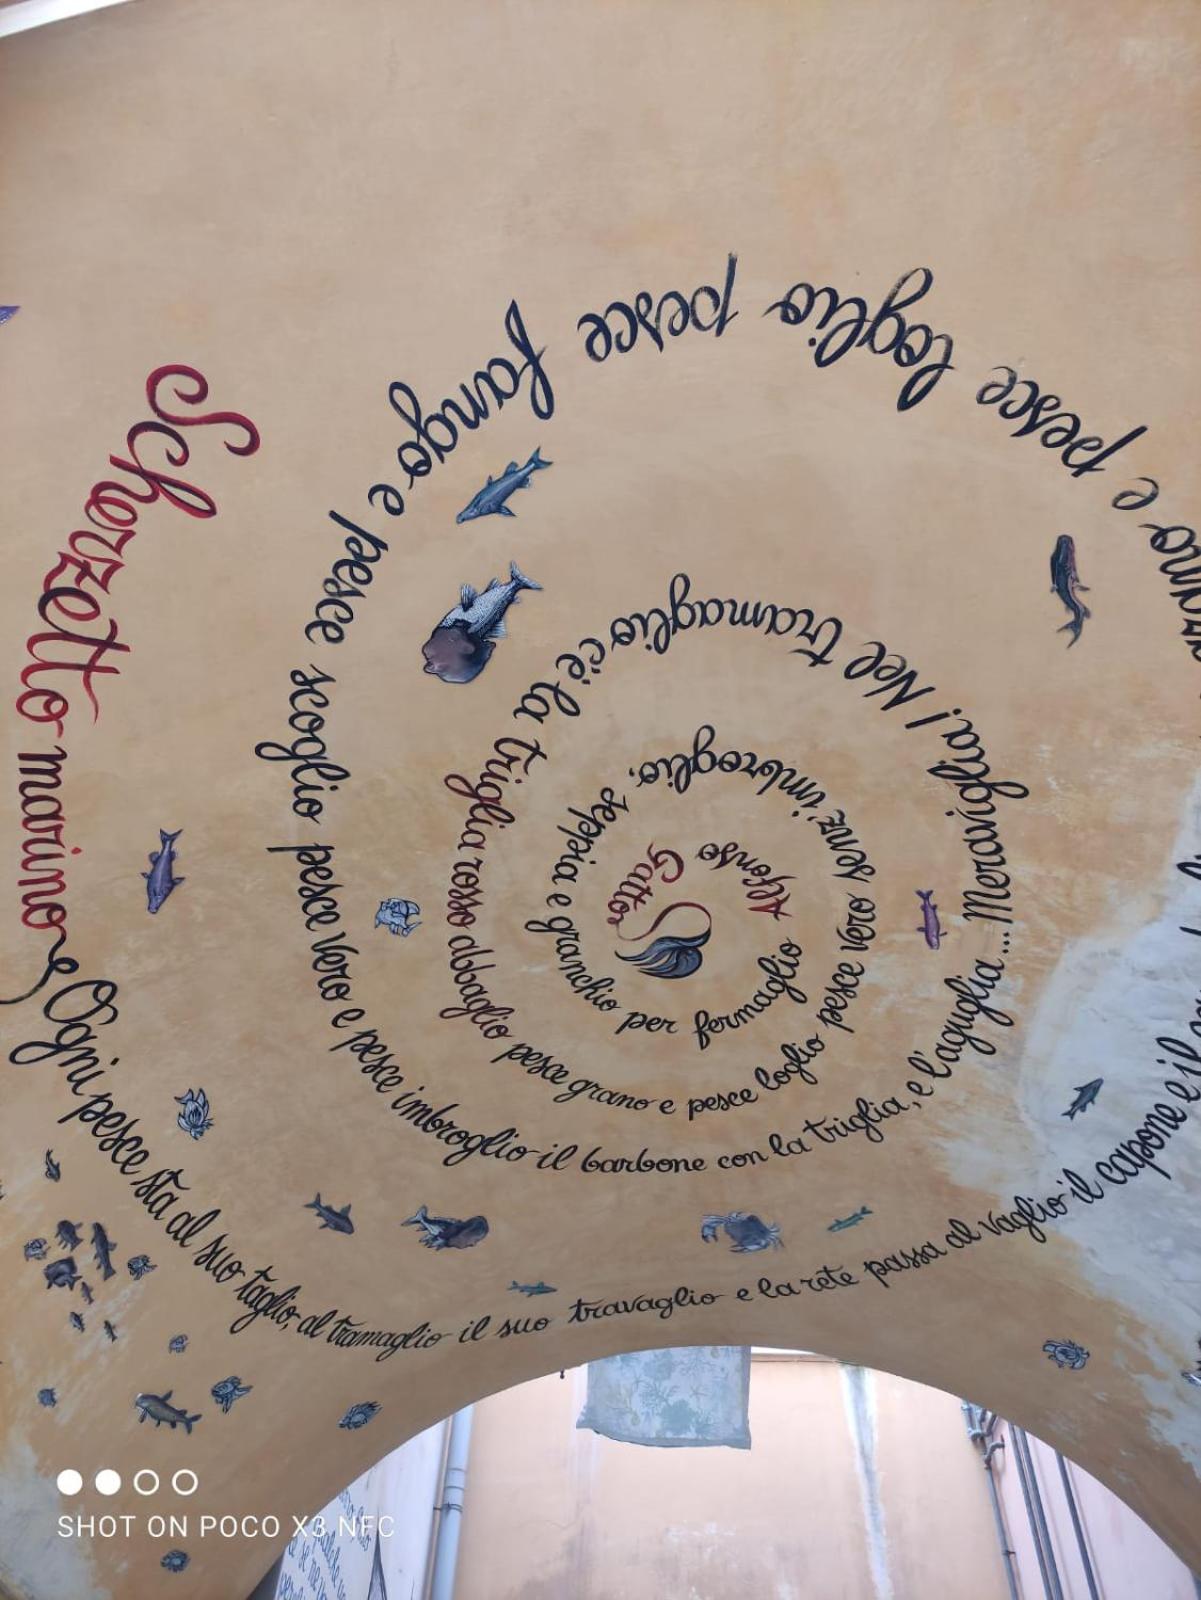 Scherzetto marino
Ogni pesce sta al suo taglio, al tramaglio il suo travaglio e la rete passa al vaglio il capone e il
e pesce loglio pesce fango e pesce scoglio pesce vero e pesce imbroglio il barbone con la triglia, e l'aguglia... Meraviglia! Nel tramaglio c'è la triglia rosso abbaglio pesce grano e pesce loglio pesce vero senz'imbroglio, seppia e granchio per fermaglio
Alfonso Gatto
SHOT ON POCO X3 NFC